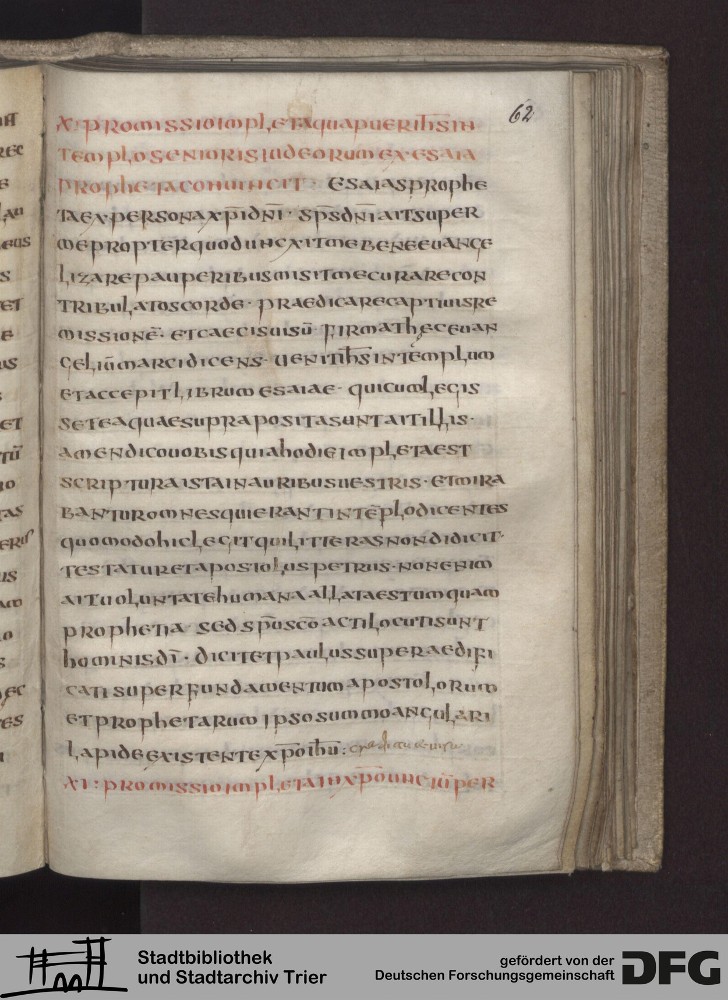 62
X: PROMISSIO IMPLETA QUA PUER IH̅S IN
TEMPLO SENIORIS IUDEORUM EX ESAIA
PROPHETA CONUINCIT · ESAIAS PROPHE
TA EX PERSONA XP̅I DN̅I · SP̅S DN̅I AIT SUPER
ME PROPTER QUOD UNCXIT ME BENE EUANGE
LIZARE PAUPERIBUS MISIT ME CURARE CON
TRIBULATOS CORDE · PRAEDICARE CAPTIUIS RE
MISSIONE̅ · ET CAECIS UISU̅ · FIRMAT HEC EUAN
GELIU̅ MARCI DICENS · UENIT IH̅S IN TEMPLUM
ET ACCEPIT LIBRUM ESAIAE · QUI CUM LEGIS
SET EA QUAE SUPRA POSITA SUNT AIT ILLIS ·
AMEN DICO UOBIS QUIA HODIE IMPLETA EST
SCRIPTURA ISTA IN AURIBUS UESTRIS · ET MIRA
BANTUR OMNES QUI ERANT IN TE̅PLO DICENTES
QUOMODO HIC LEGIT QUI LITTERAS NON DIDICIT ·
TESTATUR ET APOSTOLUS PETRUS · NON ENIM
AIT UOLUNTATE HUMANA ALLATA EST UMQUAM
PROPHETIA · SED SP̅U SC̅O ACTI LOCUTI SUNT
HOMINIS DI̅ · DICIT ET PAULUS SUPERAEDIFI
CATI SUPER FUNDAMENTUM APOSTOLORUM
ET PROPHETARUM IPSO SUMMO ANGULARI
LAPIDE EXISTENTE XP̅O IHU̅ :
XI: PROMISSIO IMPLETA IN XP̅O UNCIU̅ PER
Stadtbibliothek
und Stadtarchiv Trier
gefördert von der
Deutschen Forschungsgemeinschaft
DFG